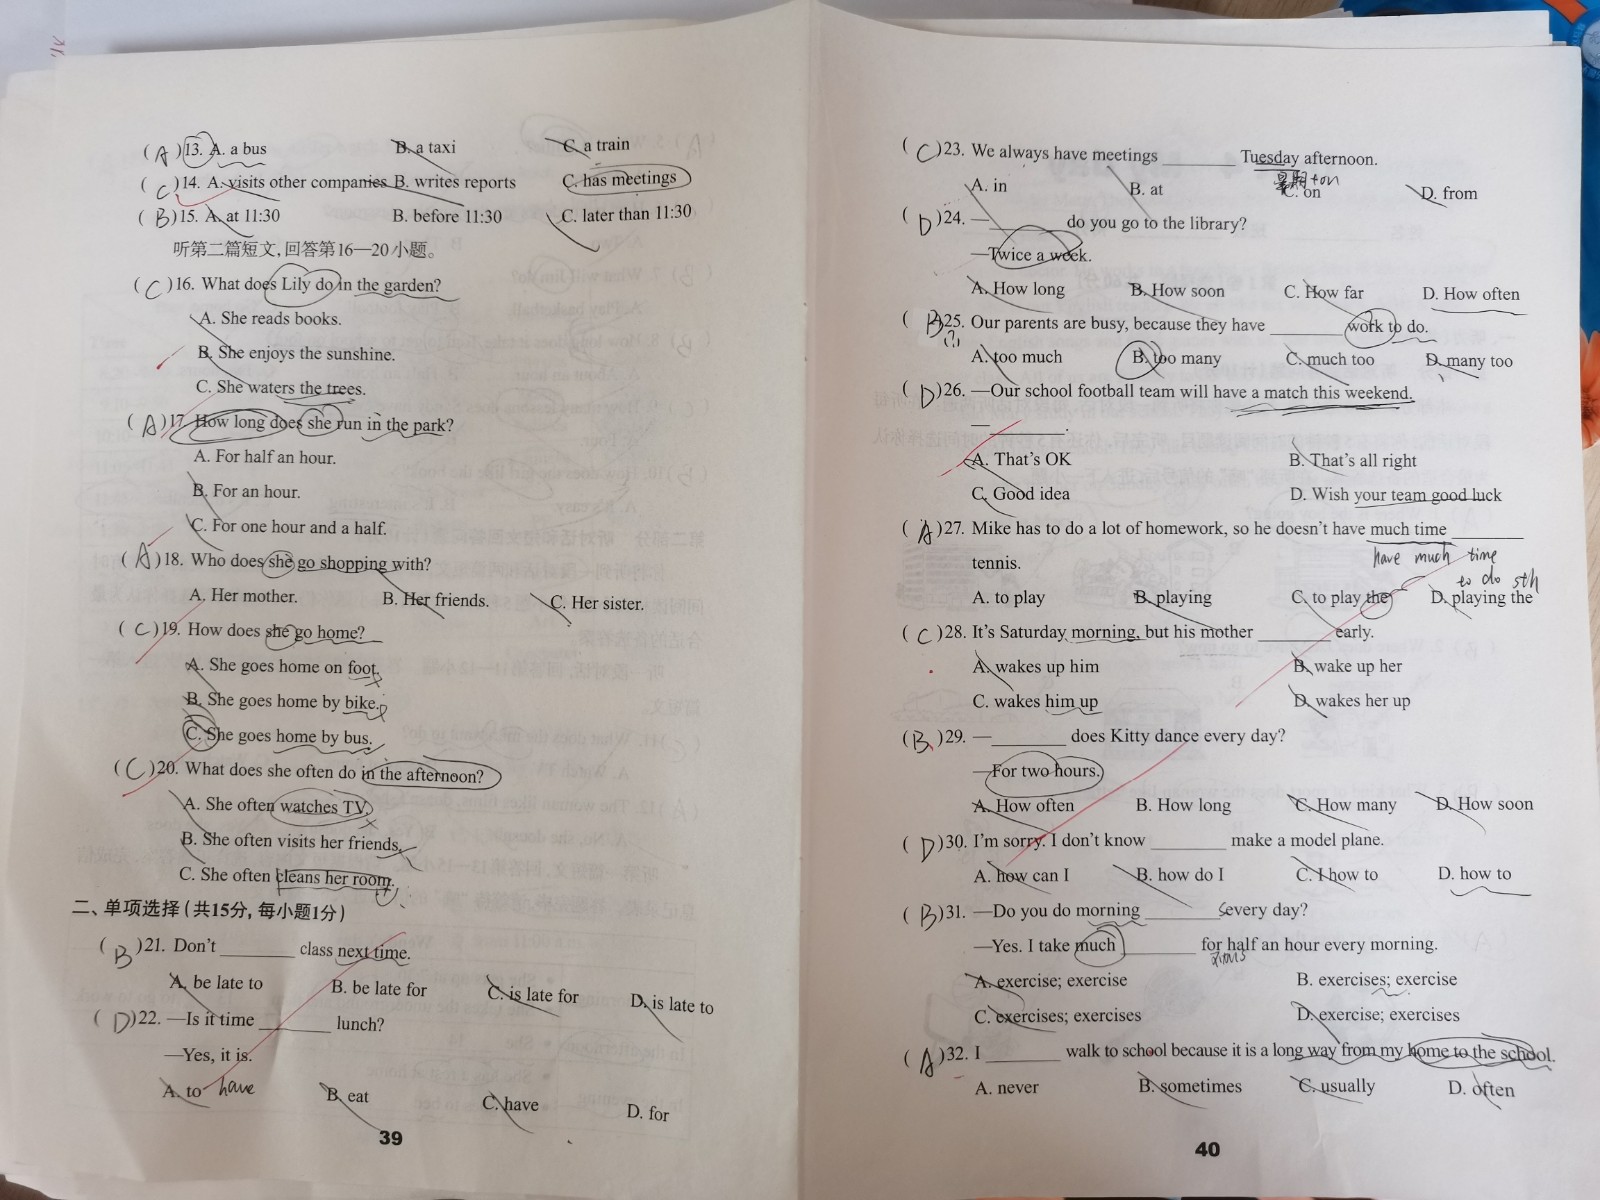 (A)13. A. a bus B. a taxi C. a train
(C)14. A. visits other companies B. writes reports C. has meetings
(B)15. A. at 11:30 B. before 11:30 C. later than 11:30
听第二篇短文,回答第16—20小题。
(C)16. What does Lily do in the garden?
A. She reads books.
B. She enjoys the sunshine.
C. She waters the trees.
(A)17. How long does she run in the park?
A. For half an hour.
B. For an hour.
C. For one hour and a half.
(A)18. Who does she go shopping with?
A. Her mother. B. Her friends. C. Her sister.
(C)19. How does she go home?
A. She goes home on foot.
B. She goes home by bike.
C. She goes home by bus.
(C)20. What does she often do in the afternoon?
A. She often watches TV.
B. She often visits her friends.
C. She often cleans her room.
二、单项选择(共15分,每小题1分)
(B)21. Don't ________ class next time.
A. be late to B. be late for C. is late for D. is late to
(D)22. —Is it time ________ lunch?
—Yes, it is.
A. to have B. eat C. have D. for
39
(C)23. We always have meetings ________ Tuesday afternoon.
星期+on
A. in B. at C. on D. from
(D)24. —________ do you go to the library?
—Twice a week.
A. How long B. How soon C. How far D. How often
(B)25. Our parents are busy, because they have ________ work to do.
A. too much B. too many C. much too D. many too
(D)26. —Our school football team will have a match this weekend.
—________.
A. That's OK B. That's all right
C. Good idea D. Wish your team good luck
(A)27. Mike has to do a lot of homework, so he doesn't have much time ________
have much time
tennis.
to do sth
A. to play B. playing C. to play the D. playing the
(C)28. It's Saturday morning, but his mother ________ early.
A. wakes up him B. wake up her
C. wakes him up D. wakes her up
(B)29. —________ does Kitty dance every day?
—For two hours.
A. How often B. How long C. How many D. How soon
(D)30. I'm sorry. I don't know ________ make a model plane.
A. how can I B. how do I C. I how to D. how to
(B)31. —Do you do morning ________ every day?
—Yes. I take much ________ for half an hour every morning.
A. exercise; exercise B. exercises; exercise
C. exercises; exercises D. exercise; exercises
(A)32. I ________ walk to school because it is a long way from my home to the school.
A. never B. sometimes C. usually D. often
40